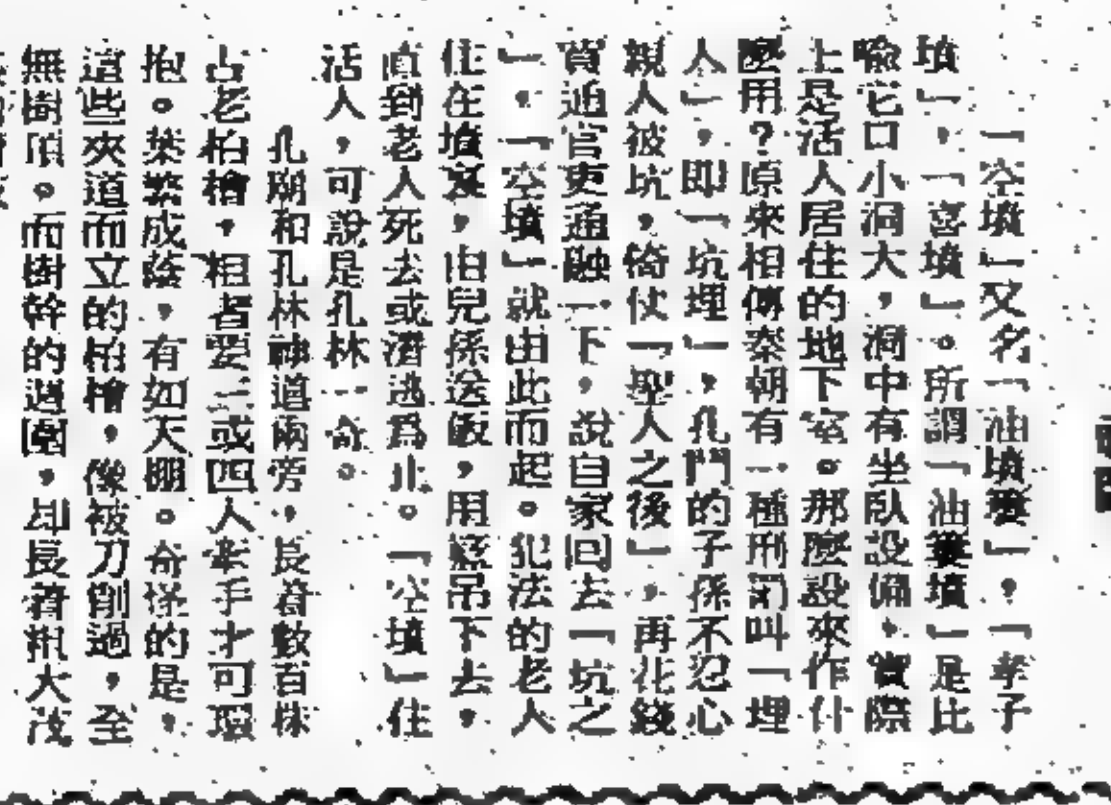 「空墳」又名「油墳簍」，「孝子
墳」，「喜墳」。所謂「油簍墳」是比
喩它口小洞大，洞中有坐臥設備，實際
上是活人居住的地下室。那麽設來作什
麽用？原來相傳秦朝有一種刑罰叫「埋
人」，即「坑埋」，孔門的子孫不忍心
親人被坑，倚仗「聖人之後」，再花錢
買通官吏通融一下，說自家回去「坑之
」，「空墳」就由此而起。犯法的老人
住在墳裏，由兒孫送飯，用籃吊下去，
直到老人死去或潛逃爲止。「空墳」住
活人，可說是孔林一奇。
孔廟和孔林神道兩旁，長着數百株
古老柏檜，粗者要三或四人牽手才可環
抱。葉繁成蔭，有如天棚。奇怪的是，
這些夾道而立的柏檜，像被刀削過，至
無樹頂。而樹幹的週圍，却長着粗大茂